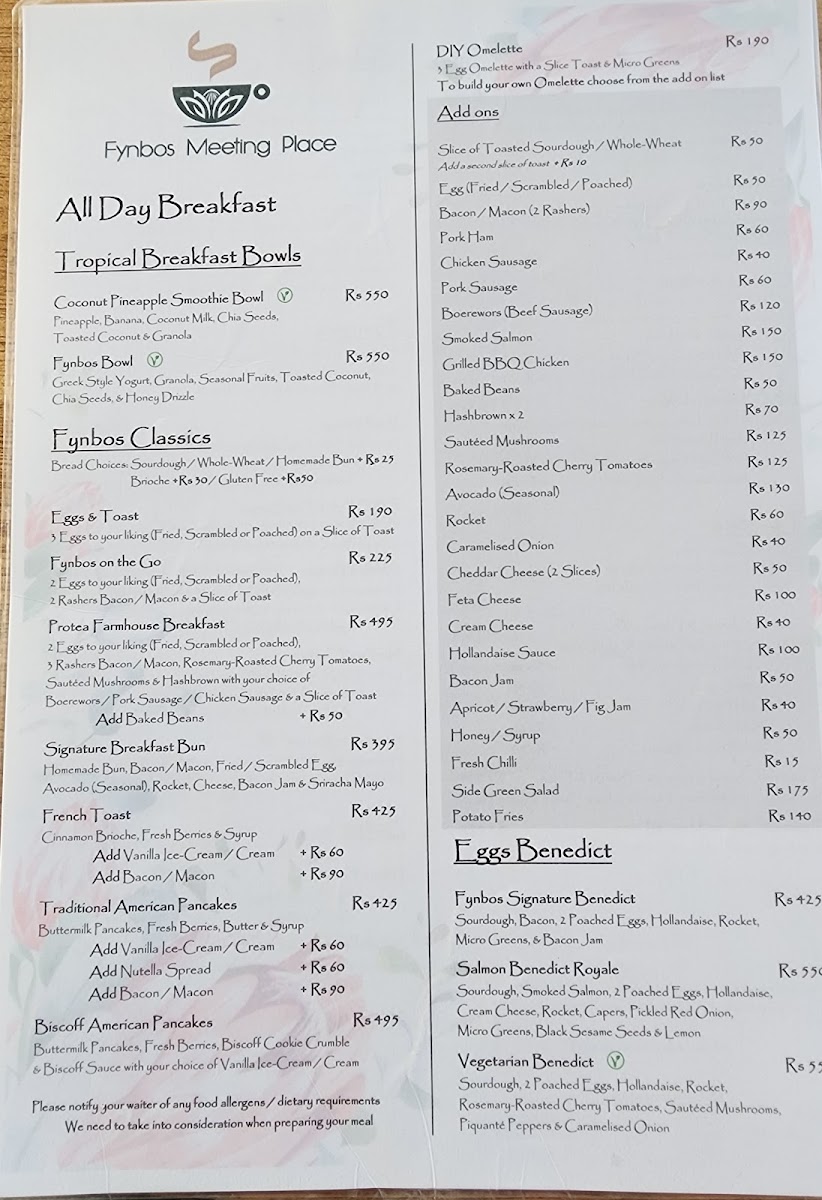 Fynbos Meeting Place
All Day Breakfast
Tropical Breakfast Bowls
Coconut Pineapple Smoothie Bowl V Rs 550
Pineapple, Banana, Coconut Milk, Chia Seeds,
Toasted Coconut & Granola
Fynbos Bowl V Rs 550
Greek Style Yogurt, Granola, Seasonal Fruits, Toasted Coconut,
Chia Seeds, & Honey Drizzle
Fynbos Classics
Bread Choices: Sourdough / Whole-Wheat / Homemade Bun + Rs 25
Brioche +Rs 30 / Gluten Free +Rs50
Eggs & Toast Rs 190
3 Eggs to your liking (Fried, Scrambled or Poached) on a Slice of Toast
Fynbos on the Go Rs 225
2 Eggs to your liking (Fried, Scrambled or Poached),
2 Rashers Bacon / Macon & a Slice of Toast
Protea Farmhouse Breakfast Rs 495
2 Eggs to your liking (Fried, Scrambled or Poached),
3 Rashers Bacon / Macon, Rosemary-Roasted Cherry Tomatoes,
Sautéed Mushrooms & Hashbrown with your choice of
Boerewors / Pork Sausage / Chicken Sausage & a Slice of Toast
Add Baked Beans + Rs 50
Signature Breakfast Bun Rs 395
Homemade Bun, Bacon / Macon, Fried / Scrambled Egg,
Avocado (Seasonal), Rocket, Cheese, Bacon Jam & Sriracha Mayo
French Toast Rs 425
Cinnamon Brioche, Fresh Berries & Syrup
Add Vanilla Ice-Cream / Cream + Rs 60
Add Bacon / Macon + Rs 90
Traditional American Pancakes Rs 425
Buttermilk Pancakes, Fresh Berries, Butter & Syrup
Add Vanilla Ice-Cream / Cream + Rs 60
Add Nutella Spread + Rs 60
Add Bacon / Macon + Rs 90
Biscoff American Pancakes Rs 495
Buttermilk Pancakes, Fresh Berries, Biscoff Cookie Crumble
& Biscoff Sauce with your choice of Vanilla Ice-Cream / Cream
Please notify your waiter of any food allergens / dietary requirements
We need to take into consideration when preparing your meal
DIY Omelette Rs 190
3 Egg Omelette with a Slice Toast & Micro Greens
To build your own Omelette choose from the add on list
Add ons
Slice of Toasted Sourdough / Whole-Wheat Rs 50
Add a second slice of toast + Rs 10
Egg (Fried / Scrambled / Poached) Rs 50
Bacon / Macon (2 Rashers) Rs 90
Pork Ham Rs 60
Chicken Sausage Rs 40
Pork Sausage Rs 60
Boerewors (Beef Sausage) Rs 120
Smoked Salmon Rs 150
Grilled BBQ Chicken Rs 150
Baked Beans Rs 50
Hashbrown x 2 Rs 70
Sautéed Mushrooms Rs 125
Rosemary-Roasted Cherry Tomatoes Rs 125
Avocado (Seasonal) Rs 130
Rocket Rs 60
Caramelised Onion Rs 40
Cheddar Cheese (2 Slices) Rs 50
Feta Cheese Rs 100
Cream Cheese Rs 40
Hollandaise Sauce Rs 100
Bacon Jam Rs 50
Apricot / Strawberry / Fig Jam Rs 40
Honey / Syrup Rs 50
Fresh Chilli Rs 15
Side Green Salad Rs 175
Potato Fries Rs 140
Eggs Benedict
Fynbos Signature Benedict Rs 425
Sourdough, Bacon, 2 Poached Eggs, Hollandaise, Rocket,
Micro Greens, & Bacon Jam
Salmon Benedict Royale Rs 550
Sourdough, Smoked Salmon, 2 Poached Eggs, Hollandaise,
Cream Cheese, Rocket, Capers, Pickled Red Onion,
Micro Greens, Black Sesame Seeds & Lemon
Vegetarian Benedict V Rs
Sourdough, 2 Poached Eggs, Hollandaise, Rocket,
Rosemary-Roasted Cherry Tomatoes, Sautéed Mushrooms,
Piquanté Peppers & Caramelised Onion